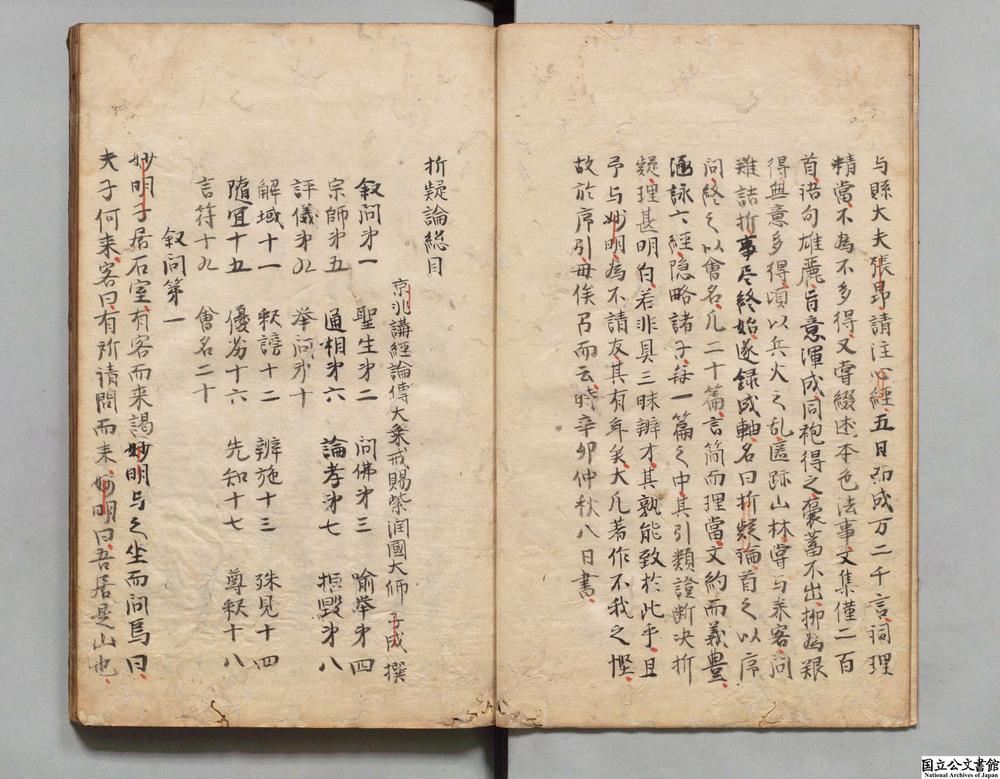 与縣大夫張昴請注心經五日而成万二千言詞理
精當不為不多得又嘗綴述本色法事文集僅二百
首語句雄麗旨意渾成同袍得之囊蓄不出抑為艱
得無意多得頃以兵火之乱匿跡山林嘗与来客問
難詰折事尽終始遂録成軸名曰折疑論首之以序
問終之以會名凡二十篇言簡而理當文約而義豊
涵詠六經隐略諸子每一篇之中其引類證断决折
疑理甚明白若非具三昧辨才其孰能致於此乎且
予与妙明為不請友其有年矣大凡著作不我之慳
故於序引毋俟召而云時辛卯仲秋八日書
折疑論総目
京兆講經論傳大乗戒賜紫潤國大師 子成 撰
叙問㐧一 聖生㐧二 問佛㐧三 喻举㐧四
宗師㐧五 通相㐧六 論孝㐧七 拒毀㐧八
評儀㐧九 举问㐧十
解域十一 釈謗十二 辨施十三 殊見十四
随宜十五 優劣十六 先知十七 尊釈十八
言符十九 會名二十
叙问第一
妙明子居石室有客而来謁妙明与之坐而問焉曰
夫子何来客曰有所請問而来妙明曰吾居是山也
国立公文書館
National Archives of Japan